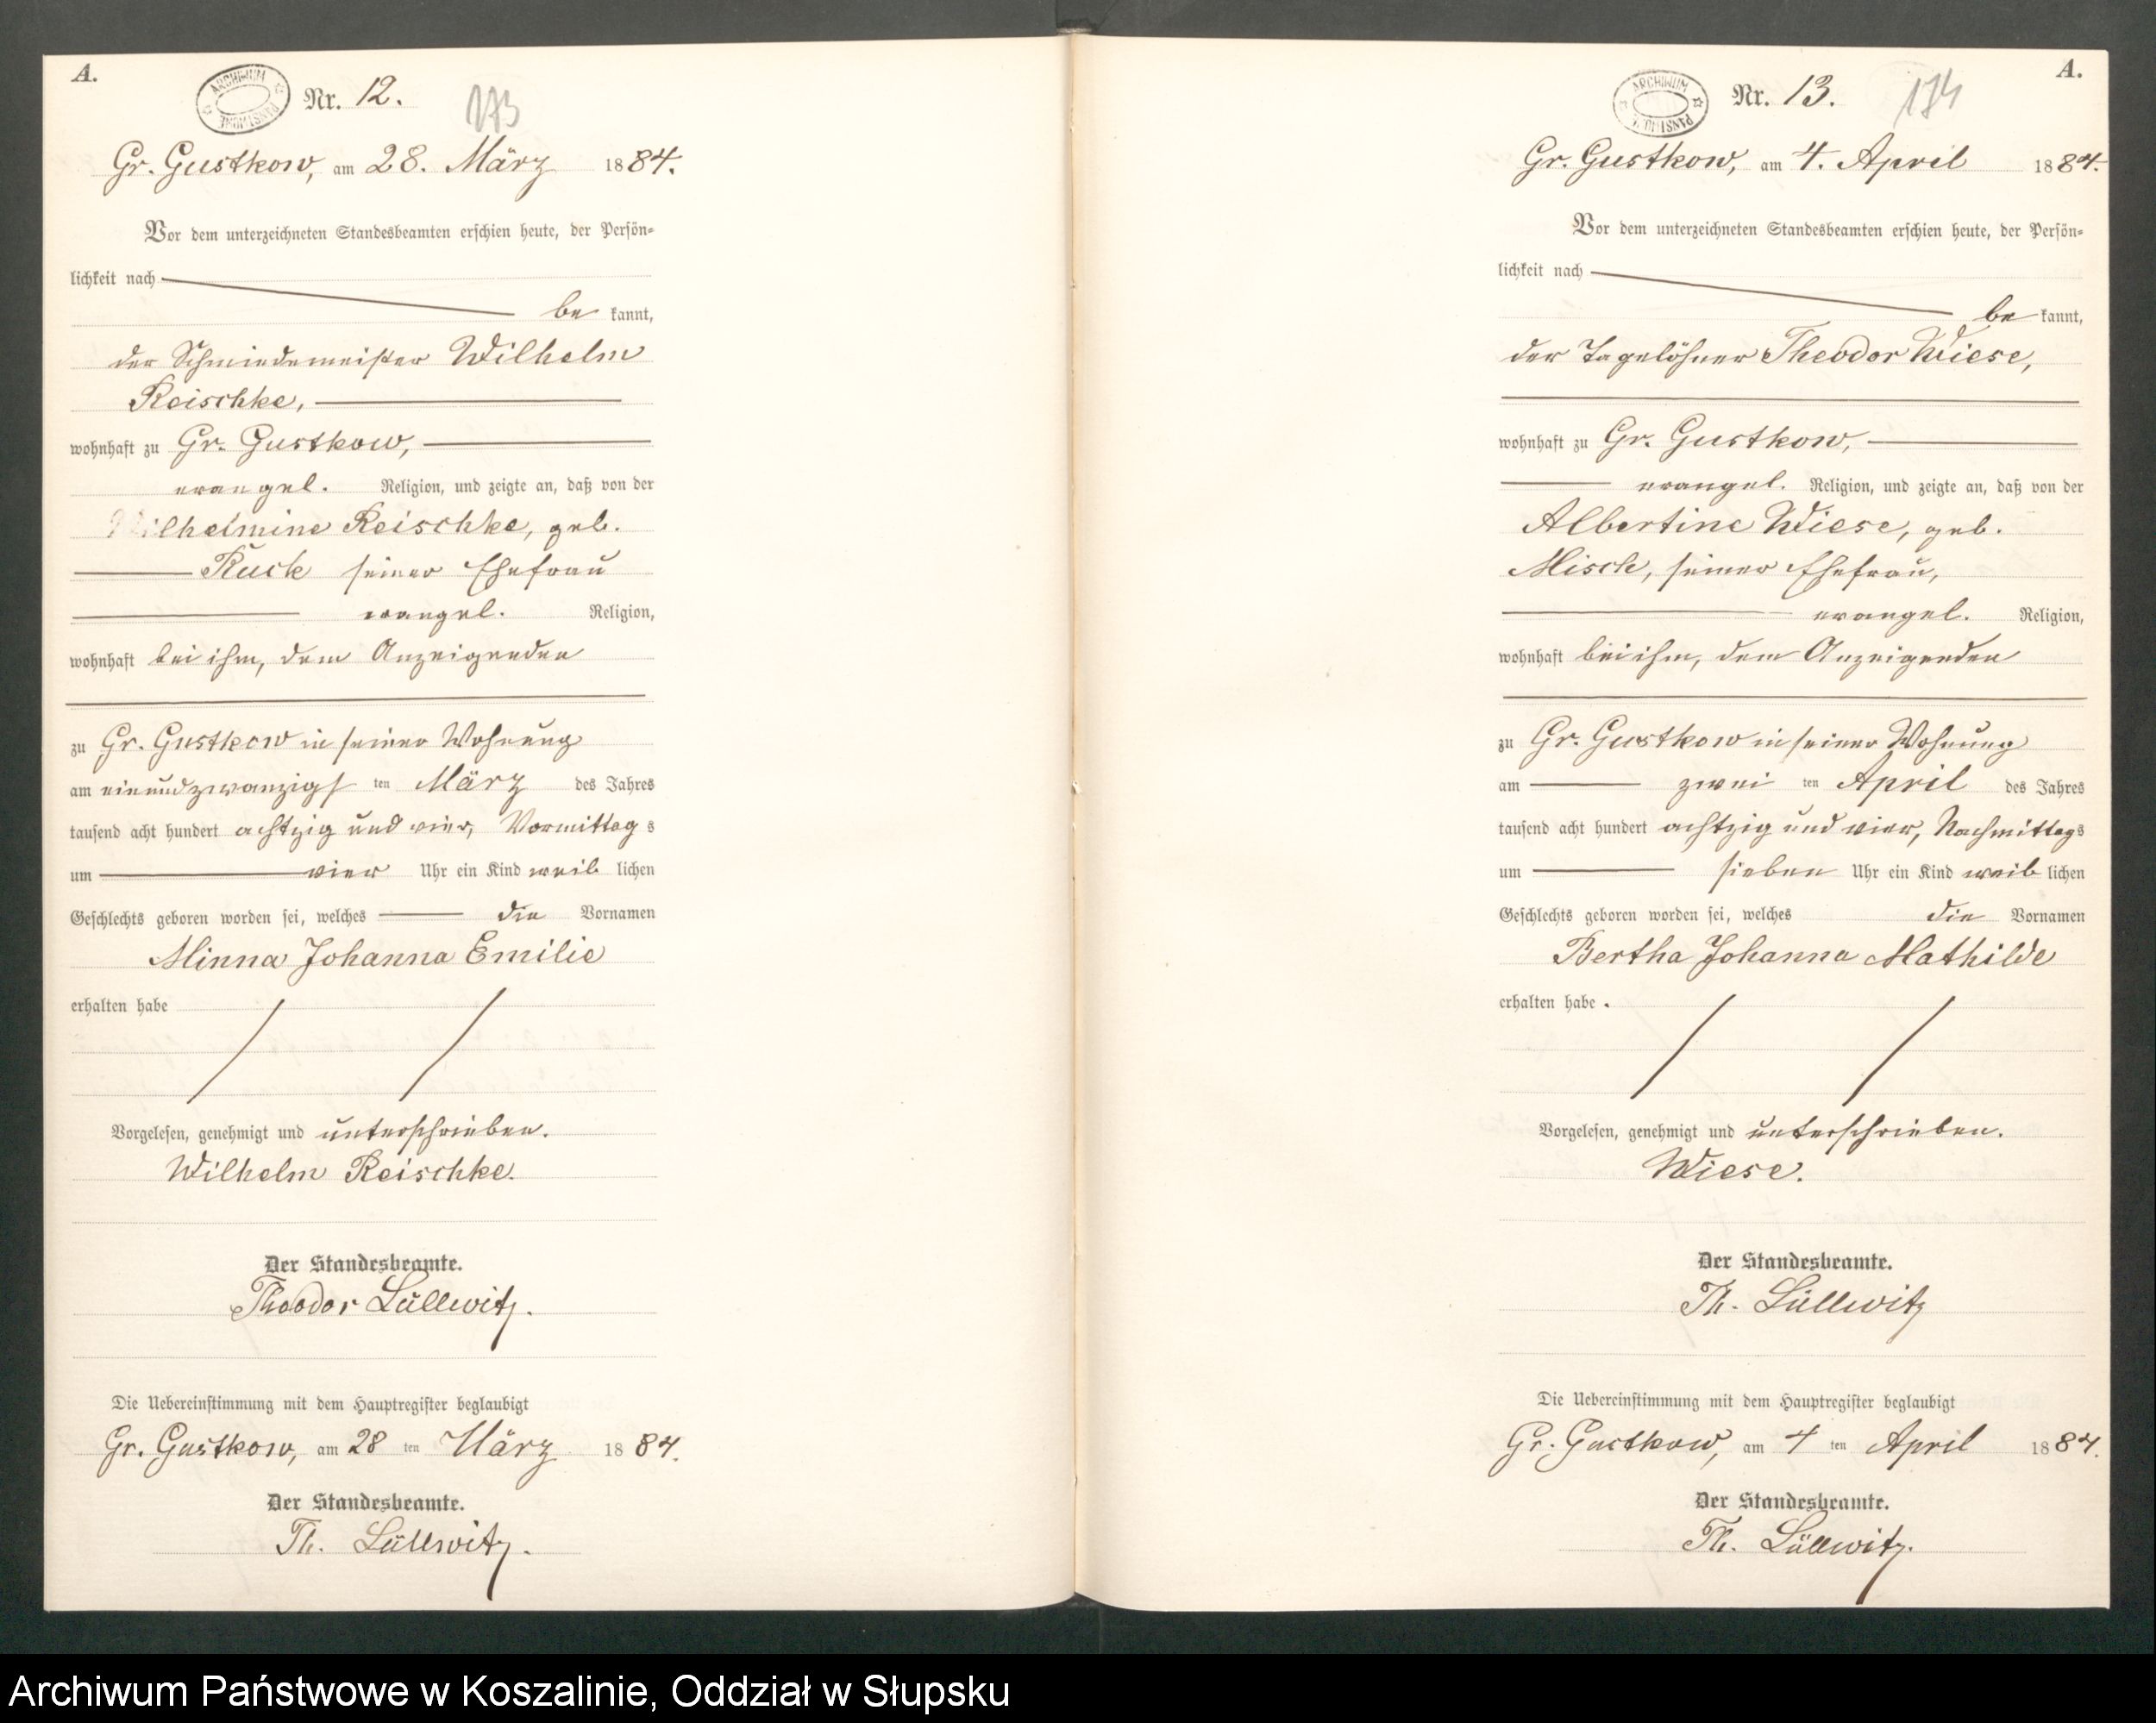 A.
ARCHIWUM PAŃSTWOWE
Nr. 12.
173
Gr. Gustkow, am 28. März 1884.
Vor dem unterzeichneten Standesbeamten erschien heute, der Persön-
lichkeit nach
be kannt,
der Schmiedemeister Wilhelm
Reischke,
wohnhaft zu Gr. Gustkow,
evangel. Religion, und zeigte an, daß von der
Wilhelmine Reischke, geb.
Kuck seiner Ehefrau
evangel. Religion,
wohnhaft bei ihm, dem Anzeigenden
zu Gr. Gustkow in seiner Wohnung
am einundzwanzigs ten März des Jahres
tausend acht hundert achtzig und vier, Vormittag s
um vier Uhr ein Kind weib lichen
Geschlechts geboren worden sei, welches die Vornamen
Minna Johanna Emilie
erhalten habe
Vorgelesen, genehmigt und unterschrieben.
Wilhelm Reischke.
Der Standesbeamte.
Theodor Lüllwitz.
Die Uebereinstimmung mit dem Hauptregister beglaubigt
Gr. Gustkow, am 28 ten März 1884.
Der Standesbeamte.
Th. Lüllwitz.
A.
ARCHIWUM PAŃSTWOWE
Nr. 13.
174
Gr. Gustkow, am 4. April 1884.
Vor dem unterzeichneten Standesbeamten erschien heute, der Persön-
lichkeit nach
be kannt,
der Tagelöhner Theodor Wiese,
wohnhaft zu Gr. Gustkow,
evangel. Religion, und zeigte an, daß von der
Albertine Wiese, geb.
Misch, seiner Ehefrau,
evangel. Religion,
wohnhaft bei ihm, dem Anzeigenden
zu Gr. Gustkow in seiner Wohnung
am zwei ten April des Jahres
tausend acht hundert achtzig und vier, Nachmittag s
um sieben Uhr ein Kind weib lichen
Geschlechts geboren worden sei, welches die Vornamen
Bertha Johanna Mathilde
erhalten habe.
Vorgelesen, genehmigt und unterschrieben.
Wiese.
Der Standesbeamte.
Th. Lüllwitz
Die Uebereinstimmung mit dem Hauptregister beglaubigt
Gr. Gustkow, am 4 ten April 1884.
Der Standesbeamte.
Th. Lüllwitz.
Archiwum Państwowe w Koszalinie, Oddział w Słupsku